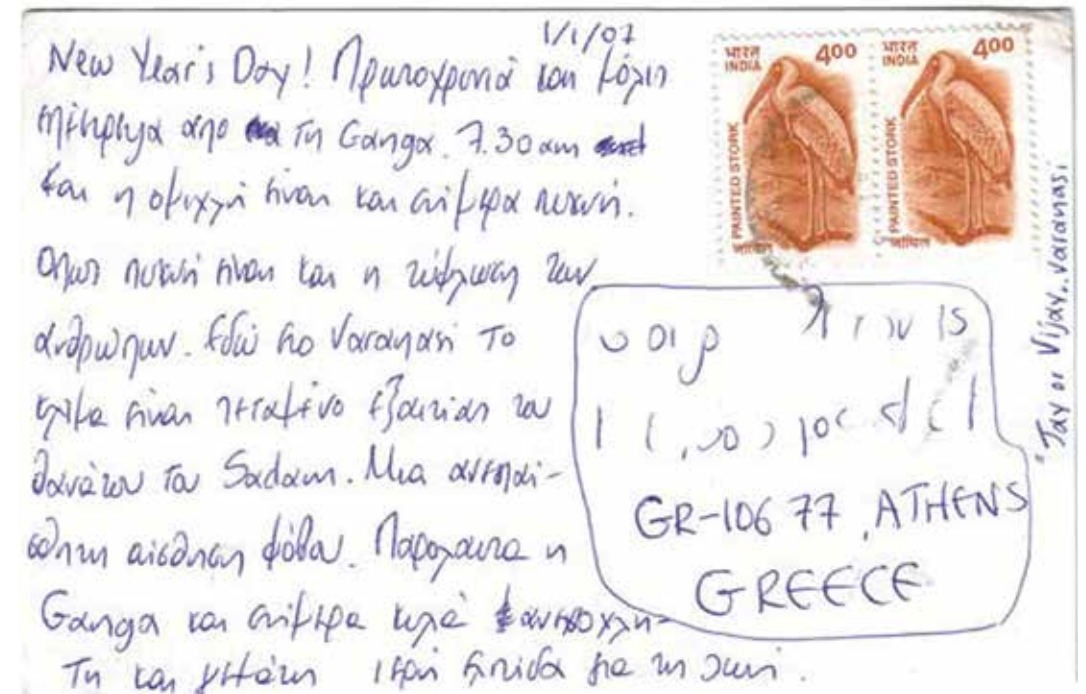 1/1/07
New Year's Day! Πρωτοχρονιά και μόλις
επέστρεψα απο τη Ganga. 7.30 am
και η ομιχλη είναι και σήμερα πυκνή.
Οπως πυκνή είναι και η τύφλωση των
ανθρώπων. Εδώ στο Varanasi το
κλίμα είναι τεταμένο εξαιτίας του
θανάτου του Sadam. Μια ανεπαί-
σθητη αίσθηση φόβου. Παρολαυτα η
Ganga και σήμερα κυλά ανενοχλη-
τη και γεμάτη ιερή ελπίδα για τη ζωή.
भारत
INDIA
4.00
PAINTED STORK
जांघिल
भारत
INDIA
4.00
PAINTED STORK
जांघिल
GR-106 77, ATHENS
GREECE
Vijay.. Varanasi